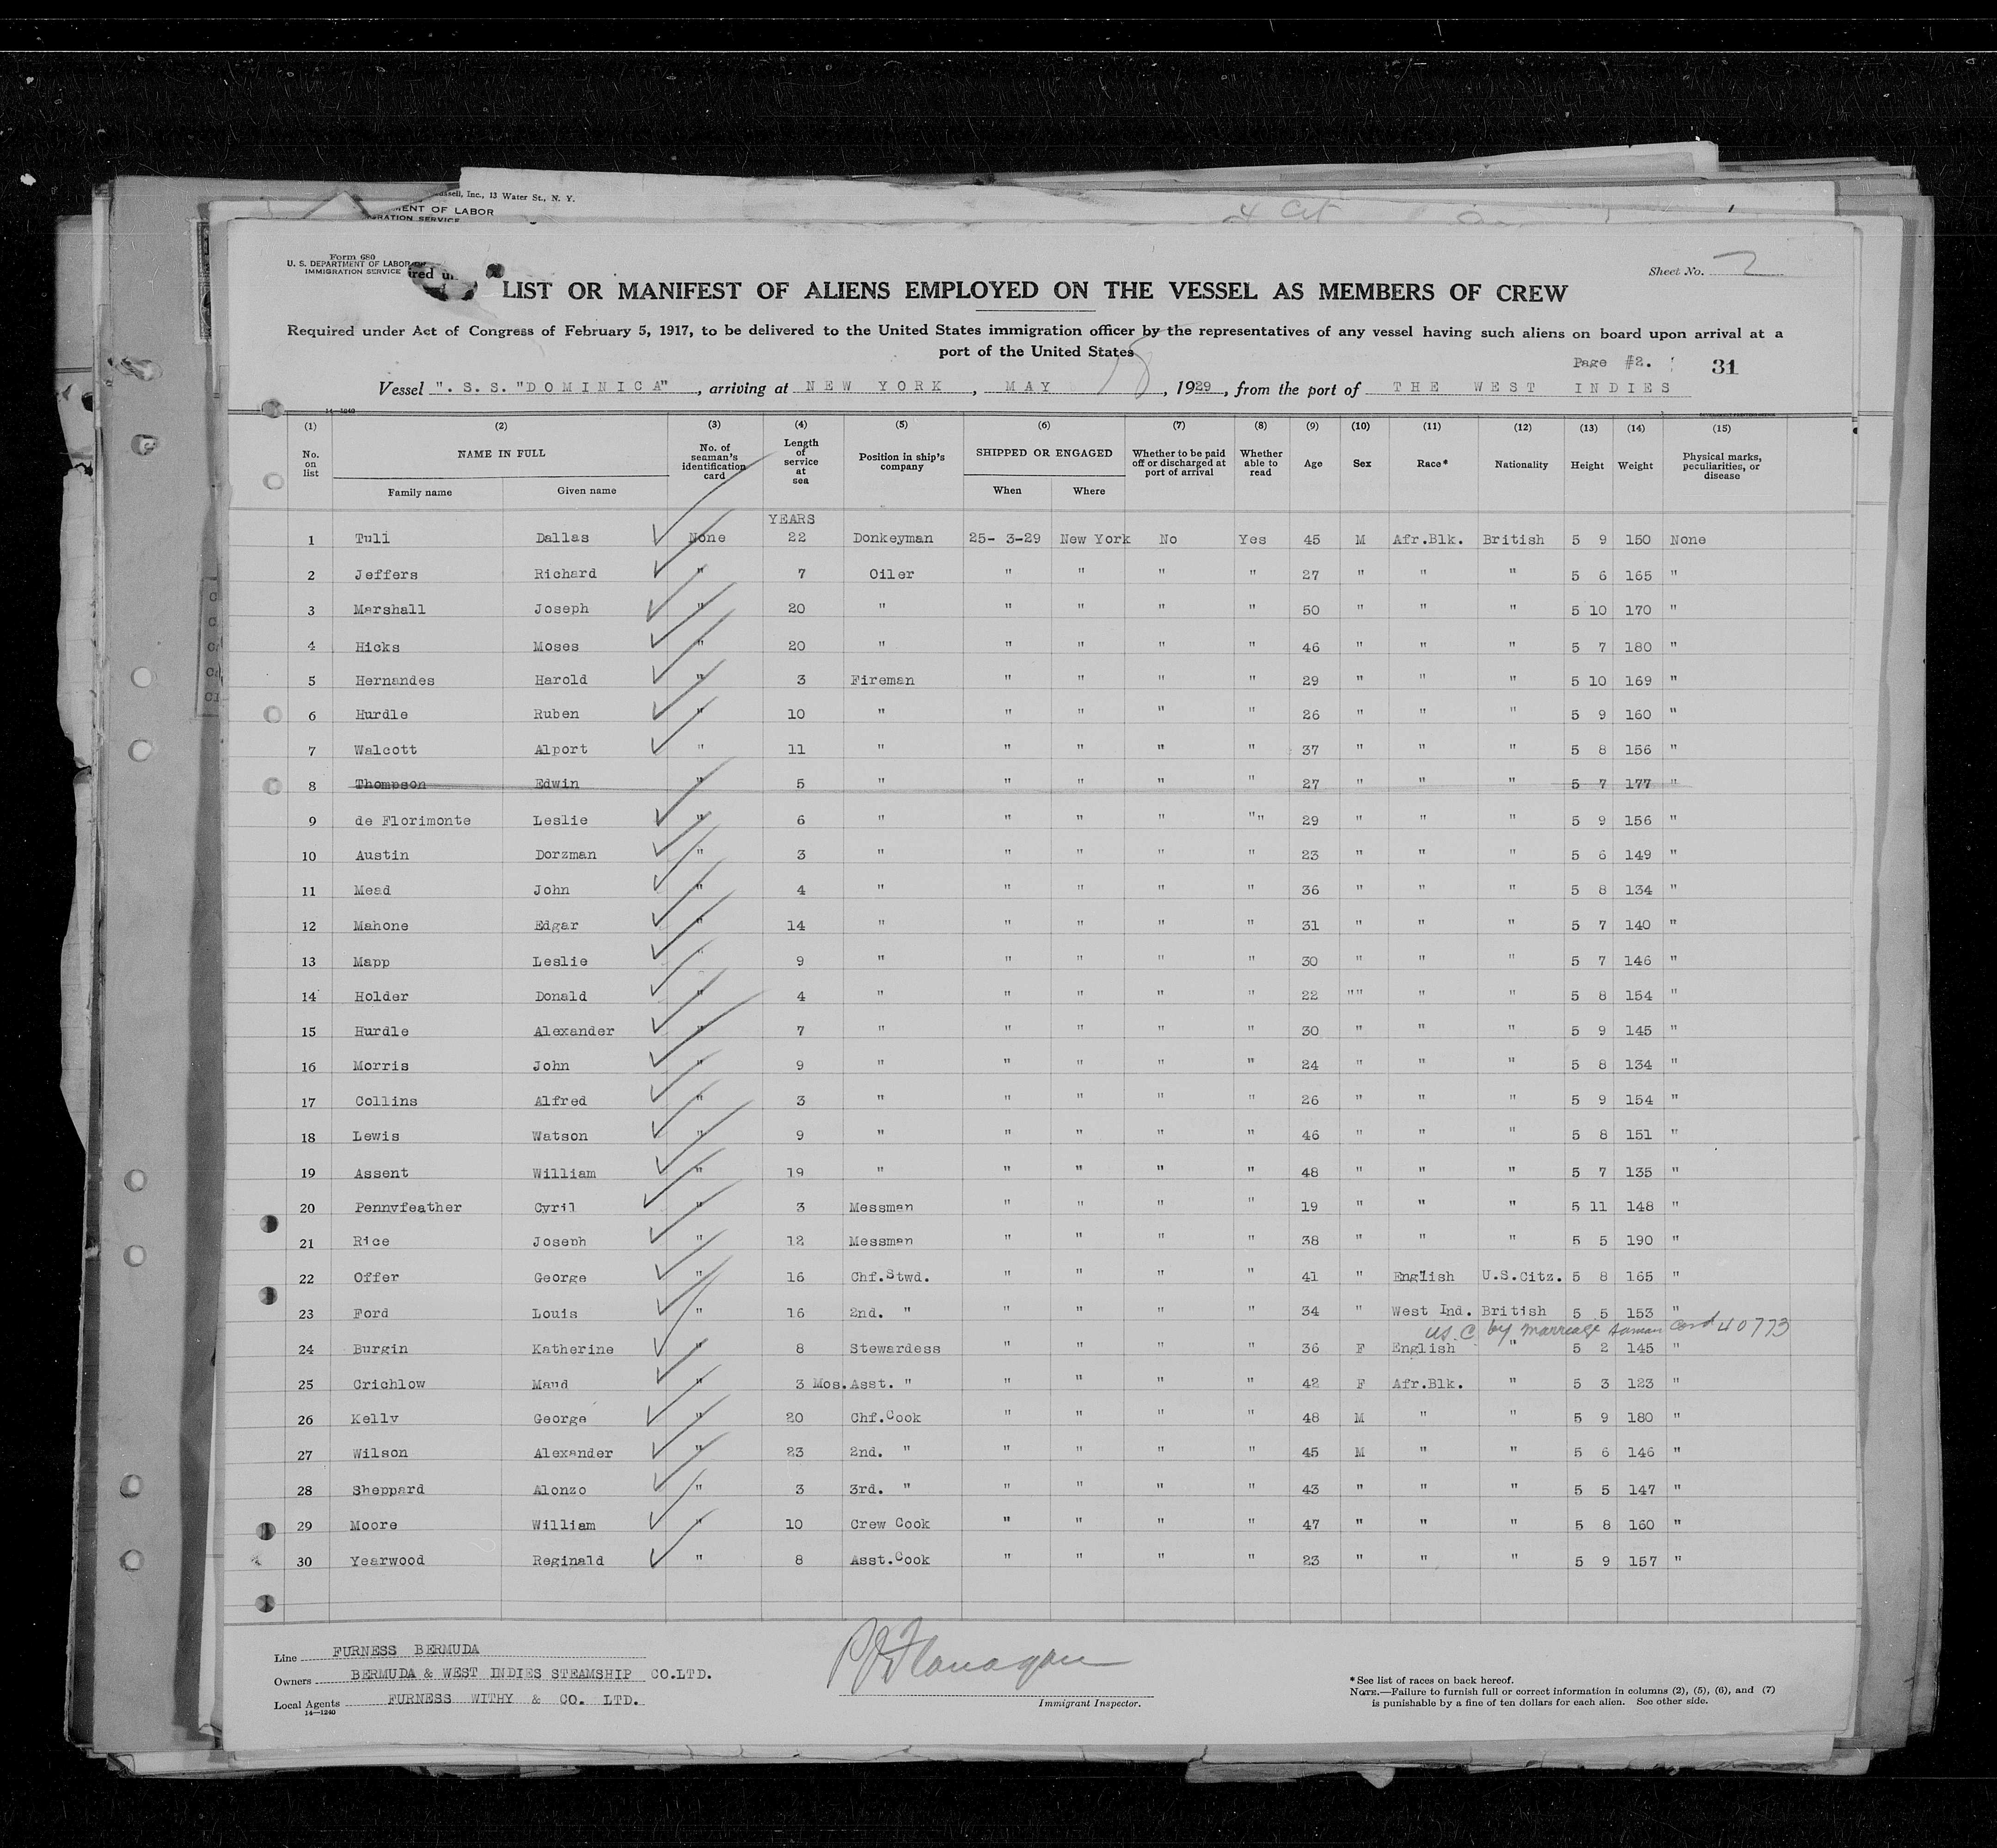 ussell, Inc., 13 Water St., N. Y.
MENT OF LABOR
GRATION SERVICE
Form 680
U. S. DEPARTMENT OF LABOR
IMMIGRATION SERVICE
Sheet No. 2
LIST OR MANIFEST OF ALIENS EMPLOYED ON THE VESSEL AS MEMBERS OF CREW
Required under Act of Congress of February 5, 1917, to be delivered to the United States immigration officer by the representatives of any vessel having such aliens on board upon arrival at a
port of the United States
Page #2. 31
Vessel ". S.S. "DOMINICA", arriving at NEW YORK, MAY, 1929, from the port of THE WEST INDIES
14—1240
(1) (2) (3) (4) (5) (6) (7) (8) (9) (10) (11) (12) (13) (14) (15)
No. on list NAME IN FULL No. of seaman's identification card Length of service at sea Position in ship's company SHIPPED OR ENGAGED Whether to be paid off or discharged at port of arrival Whether able to read Age Sex Race* Nationality Height Weight Physical marks, peculiarities, or disease
Family name Given name When Where
YEARS
1 Tuli Dallas None 22 Donkeyman 25- 3-29 New York No Yes 45 M Afr.Blk. British 5 9 150 None
2 Jeffers Richard " 7 Oiler " " " " 27 " " " 5 6 165 "
3 Marshall Joseph " 20 " " " " " 50 " " " 5 10 170 "
4 Hicks Moses " 20 " " " " " 46 " " " 5 7 180 "
5 Hernandes Harold " 3 Fireman " " " " 29 " " " 5 10 169 "
6 Hurdle Ruben " 10 " " " " " 26 " " " 5 9 160 "
7 Walcott Alport " 11 " " " " " 37 " " " 5 8 156 "
8 Thompson Edwin " 5 " " " " " 27 " " " 5 7 177 "
9 de Florimonte Leslie " 6 " " " " "" 29 " " " 5 9 156 "
10 Austin Dorzman " 3 " " " " " 23 " " " 5 6 149 "
11 Mead John " 4 " " " " " 36 " " " 5 8 134 "
12 Mahone Edgar " 14 " " " " " 31 " " " 5 7 140 "
13 Mapp Leslie " 9 " " " " " 30 " " " 5 7 146 "
14 Holder Donald " 4 " " " " " 22 "" " " 5 8 154 "
15 Hurdle Alexander " 7 " " " " " 30 " " " 5 9 145 "
16 Morris John " 9 " " " " " 24 " " " 5 8 134 "
17 Collins Alfred " 3 " " " " " 26 " " " 5 9 154 "
18 Lewis Watson " 9 " " " " " 46 " " " 5 8 151 "
19 Assent William " 19 " " " " " 48 " " " 5 7 135 "
20 Pennyfeather Cyril " 3 Messman " " " " 19 " " " 5 11 148 "
21 Rice Joseph " 12 Messman " " " " 38 " " " 5 5 190 "
22 Offer George " 16 Chf.Stwd. " " " " 41 " English U.S.Citz. 5 8 165 "
23 Ford Louis " 16 2nd. " " " " " 34 " West Ind. British 5 5 153 "
US.C. by marriage card 40773
24 Burgin Katherine " 8 Stewardess " " " " 36 F English " 5 2 145 "
25 Crichlow Maud " 3 Mos. Asst. " " " " " 42 F Afr.Blk. " 5 3 123 "
26 Kelly George " 20 Chf.Cook " " " " 48 M " " 5 9 180 "
27 Wilson Alexander " 23 2nd. " " " " " 45 M " " 5 6 146 "
28 Sheppard Alonzo " 3 3rd. " " " " " 43 " " " 5 5 147 "
29 Moore William " 10 Crew Cook " " " " 47 " " " 5 8 160 "
30 Yearwood Reginald " 8 Asst.Cook " " " " 23 " " " 5 9 157 "
Line FURNESS BERMUDA
Owners BERMUDA & WEST INDIES STEAMSHIP CO.LTD.
Local Agents FURNESS WITHY & CO. LTD.
14—1240
P J Flanagan
Immigrant Inspector.
*See list of races on back hereof.
NOTE.—Failure to furnish full or correct information in columns (2), (5), (6), and (7)
is punishable by a fine of ten dollars for each alien. See other side.